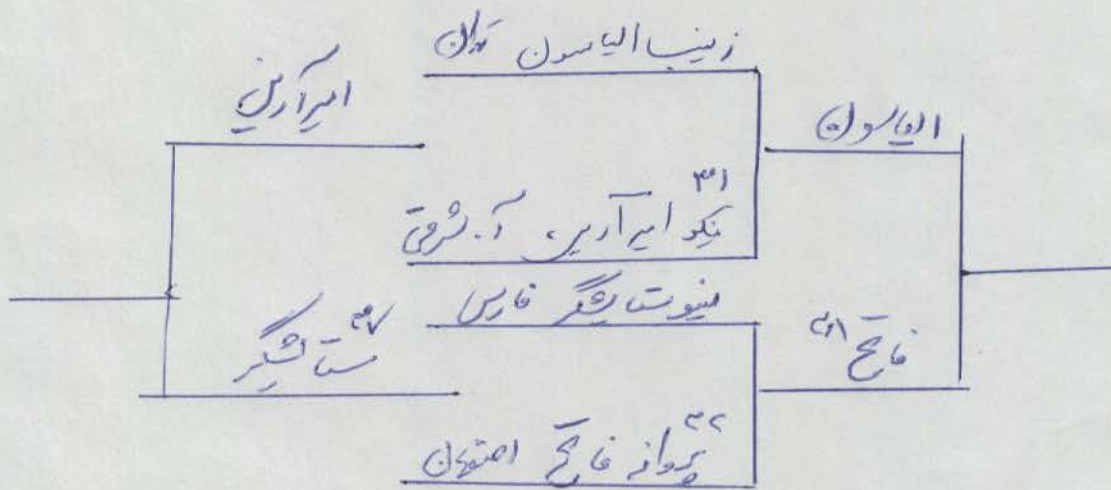 زینب الیاسون تهران
امیرآرین
الیاسون
۳۱
نیکو امیرآرین، آ. شرقی
مینو ستایشگر فارس
ستایشگر
فاتح
پروانه فاتح اصفهان